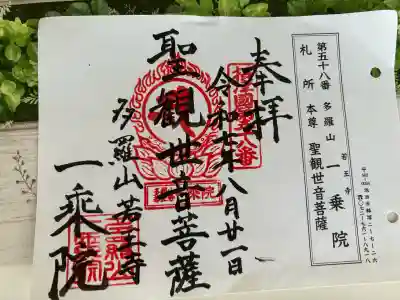 第五十八番 多羅山 若王寺 一乗院
札所 本尊 聖観世音菩薩
奉拝
令和七年八月廿一日
聖観世音菩薩
多羅山若王寺
一乗院